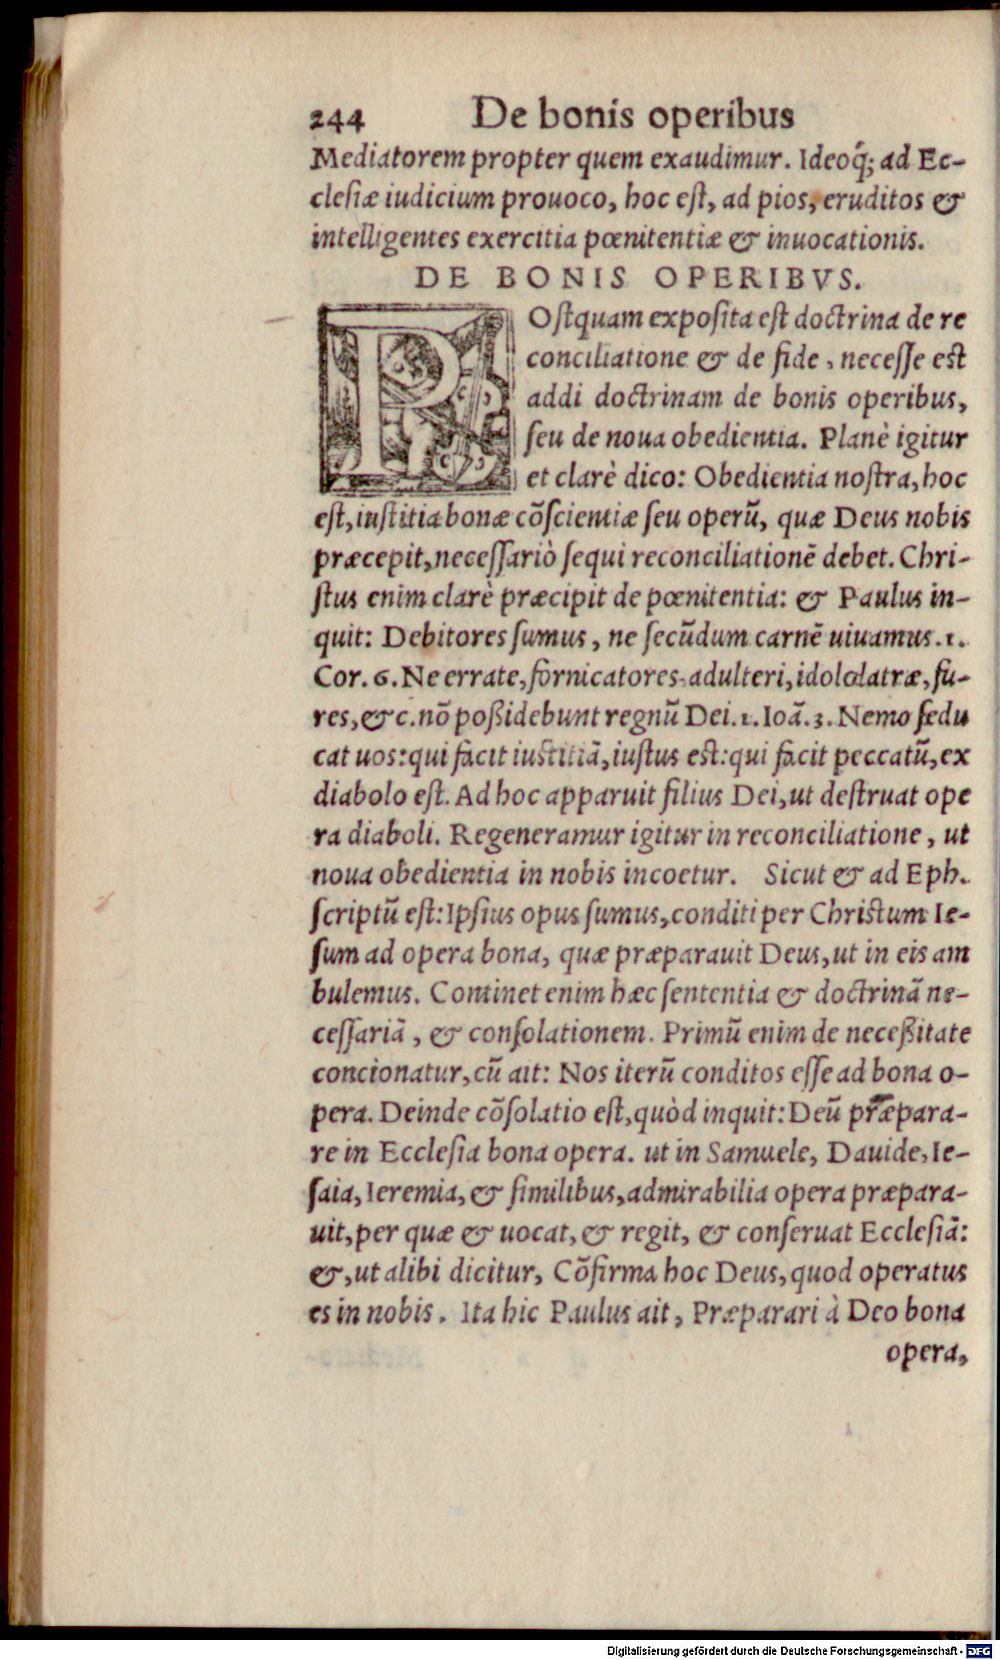 244 De bonis operibus
Mediatorem propter quem exaudimur. Ideoq́; ad Ec-
clesiæ iudicium prouoco, hoc est, ad pios, eruditos &
intelligentes exercitia pœnitentiæ & inuocationis.
DE BONIS OPERIBVS.
POſtquam expoſita eſt doctrina de re
conciliatione & de fide, neceſſe eſt
addi doctrinam de bonis operibus,
ſeu de noua obedientia. Planè igitur
et clarè dico: Obedientia noſtra, hoc
eſt, iuſtitia bonæ cõſcientiæ ſeu operũ, quæ Deus nobis
præcepit, neceſſariò ſequi reconciliationẽ debet. Chri-
ſtus enim clarè præcipit de pœnitentia: & Paulus in-
quit: Debitores ſumus, ne ſecũdum carnẽ uiuamus. 1.
Cor. 6. Ne errate, fornicatores, adulteri, idololatræ, fu-
res, &c. nõ poßidebunt regnũ Dei. 1. Ioã. 3. Nemo ſedu
cat uos: qui facit iuſtitiã, iuſtus eſt: qui facit peccatũ, ex
diabolo eſt. Ad hoc apparuit filius Dei, ut deſtruat ope
ra diaboli. Regeneramur igitur in reconciliatione, ut
noua obedientia in nobis incoetur. Sicut & ad Eph.
ſcriptũ eſt: Ipſius opus ſumus, conditi per Chriſtum Ie-
ſum ad opera bona, quæ præparauit Deus, ut in eis am
bulemus. Continet enim hæc ſententia & doctrinã ne-
ceſſariã, & conſolationem. Primũ enim de neceßitate
concionatur, cũ ait: Nos iterũ conditos eſſe ad bona o-
pera. Deinde cõſolatio eſt, quòd inquit: Deũ præpara-
re in Eccleſia bona opera. ut in Samuele, Dauide, Ie-
ſaia, Ieremia, & ſimilibus, admirabilia opera præpara-
uit, per quæ & uocat, & regit, & conſeruat Eccleſiã:
&, ut alibi dicitur, Cõfirma hoc Deus, quod operatus
es in nobis. Ita hic Paulus ait, Præparari à Deo bona
opera,
Digitalisierung gefördert durch die Deutsche Forschungsgemeinschaft - DFG